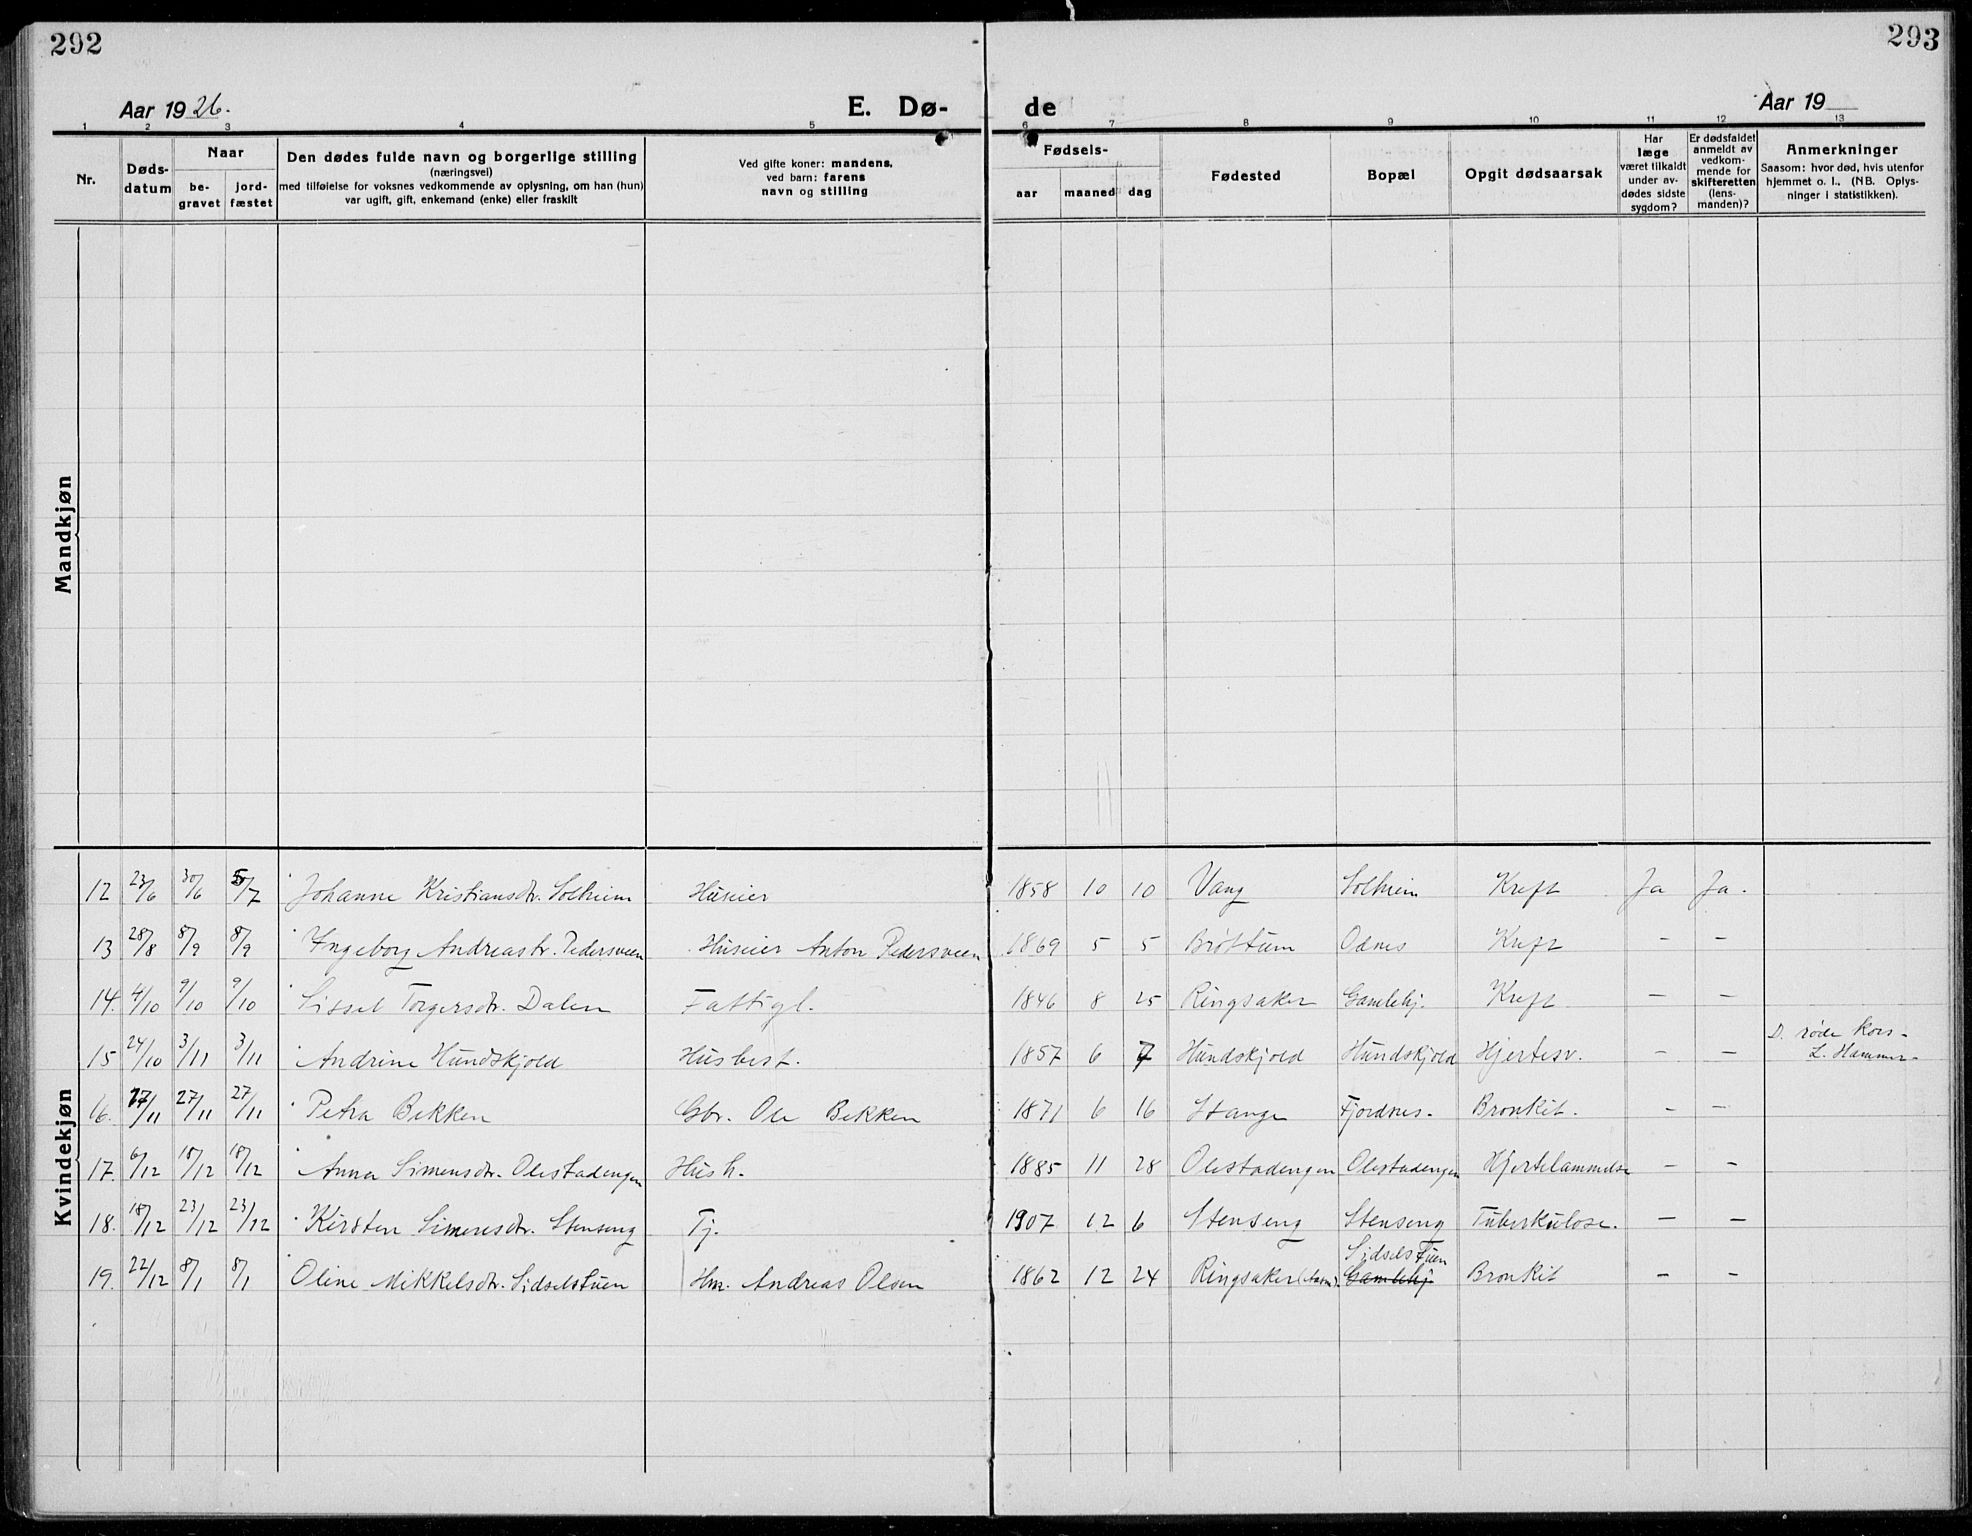 292
293
Aar 1926.
E. Dø-
de
Aar 19
1 2 3 4 5 6 7 8 9 10 11 12 13
Nr.
Døds-
datum
Naar
be-
gravet
jord-
fæstet
Den dødes fulde navn og borgerlige stilling
(næringsvei)
med tilføielse for voksnes vedkommende av oplysning, om han (hun)
var ugift, gift, enkemand (enke) eller fraskilt
Ved gifte koner: mandens,
ved barn: farens
navn og stilling
Fødsels-
aar
maaned
dag
Fødested
Bopæl
Opgit dødsaarsak
Har
læge
været tilkaldt
under av-
dødes sidste
sygdom?
Er dødsfaldet
anmeldt av
vedkom-
mende for
skifteretten
(lens-
manden)?
Anmerkninger
Saasom: hvor død, hvis utenfor
hjemmet o. l., (NB. Oplys-
ninger i statistikken).
Mandkjøn
Kvindekjøn
12 23/6 30/6 5/7 Johanne Kristiansdtr. Solheim Huseier 1858 10 10 Vang Solheim Kreft Ja Ja.
13 28/8 8/9 8/9 Ingeborg Andreasdtr. Pedersveen Huseier Anton Pedersveen 1869 5 5 Brøttum Odnes Kreft – –
14. 4/10 9/10 9/10 Sissel Torgersdtr. Dalen Fattigl. 1846 8 25 Ringsaker Gamlehj. Kreft – –
15 24/10 3/11 3/11 Andrine Hundskjold Husbest. 1857 6 7 Hundskjold Hundskjold Hjertesv. – – D. røde Kors -
L. Hammer-
16. 17/11 27/11 27/11 Petra Bekken Gbr. Ole Bekken 1871 6 16 Stange Fjordnes. Bronkit. – –
17. 6/12 18/12 18/12 Anna Simensdtr. Olestadengen Hush. 1885 11 28 Olestadengen Olestadengen Hjertelammelse – –
18. 18/12 23/12 23/12 Kirsten Simensdtr. Stenseng Tj. 1907 12 6 Stenseng Stenseng Tuberkulose. – –
19. 22/12 8/1 8/1 Oline Mikkelsdtr. Sidselstuen Hm. Andreas Olsen 1862 12 24 Ringsaker Sidselstuen Gamlehj Bronkit – –